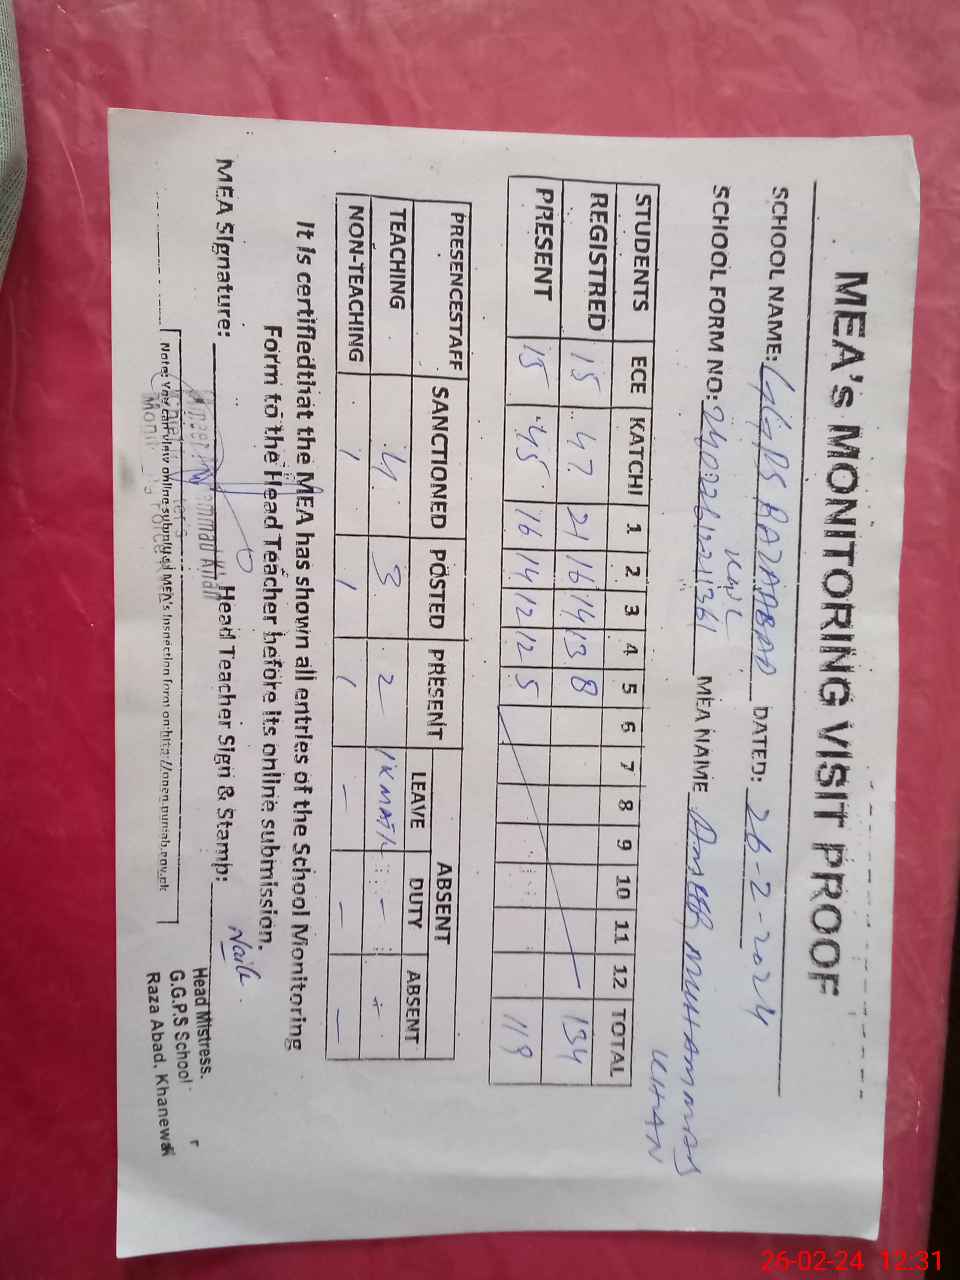 MEA's MONITORING VISIT PROOF
SCHOOL NAME: GGPS RAZAABAD DATED: 26-2-2024
KWL
SCHOOL FORM NO: MEA NAME Ameer MUHAMMAD
KHAN
STUDENTS ECE KATCHI 1 2 3 4 5 6 7 8 9 10 11 12 TOTAL
REGISTRED 15 47 21 16 14 13 8 134
PRESENT 15 45 16 14 12 12 5 119
PRESENCESTAFF SANCTIONED POSTED PRESENT ABSENT
LEAVE DUTY ABSENT
TEACHING 4 3 2 1 -
NON-TEACHING 1 1 1 - - -
It is certifiedthat the MEA has shown all entries of the School Monitoring
Form to the Head Teacher before its online submission.
MEA Signature: Head Teacher Sign & Stamp: Naila
Ameer Muhammad Khan
Head Mistress.
G.G.P.S School
Raza Abad, Khanewal
Note: You can view online submitted MEA's Inspection form on http://open.punjab.gov.pk
26-02-24 12:31